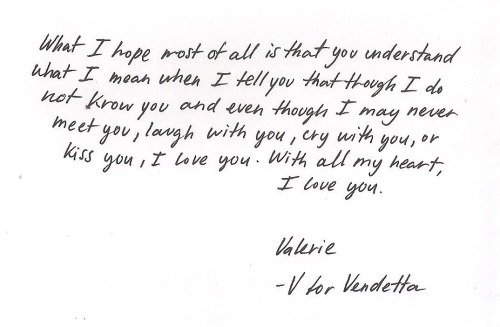 What I hope most of all is that you understand
what I mean when I tell you that though I do
not know you and even though I may never
meet you, laugh with you, cry with you, or
kiss you, I love you. With all my heart,
I love you.
Valerie
-V for Vendetta